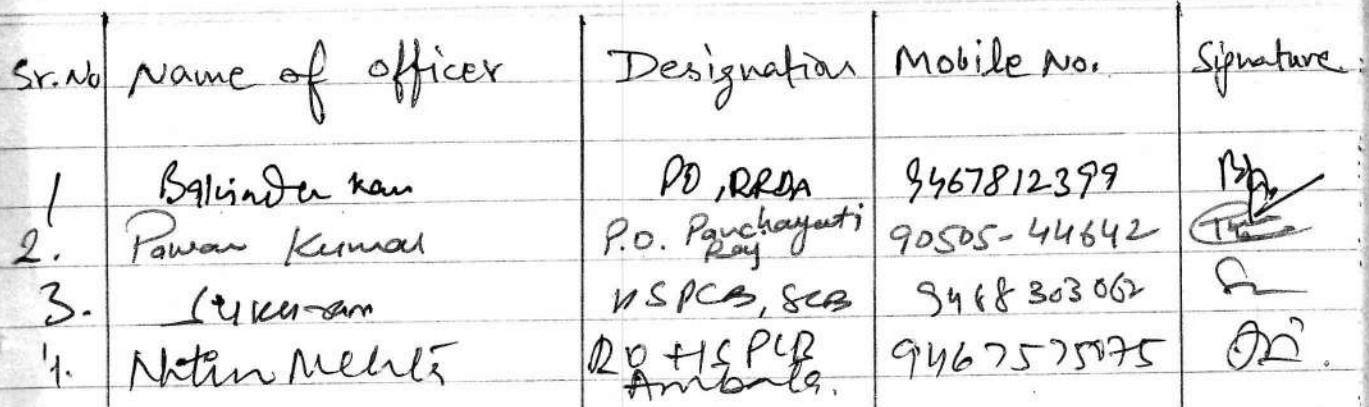 Sr.No Name of officer Designation Mobile No. Signature
1 Balvinder PO, RRDA 9467812399
2. Pawan Kumar P.O. Panchayati Raj 90505-44642
3. HSPCB, 9468303062
4. Nitin Mehta RO HSPCB Ambala. 9467575075